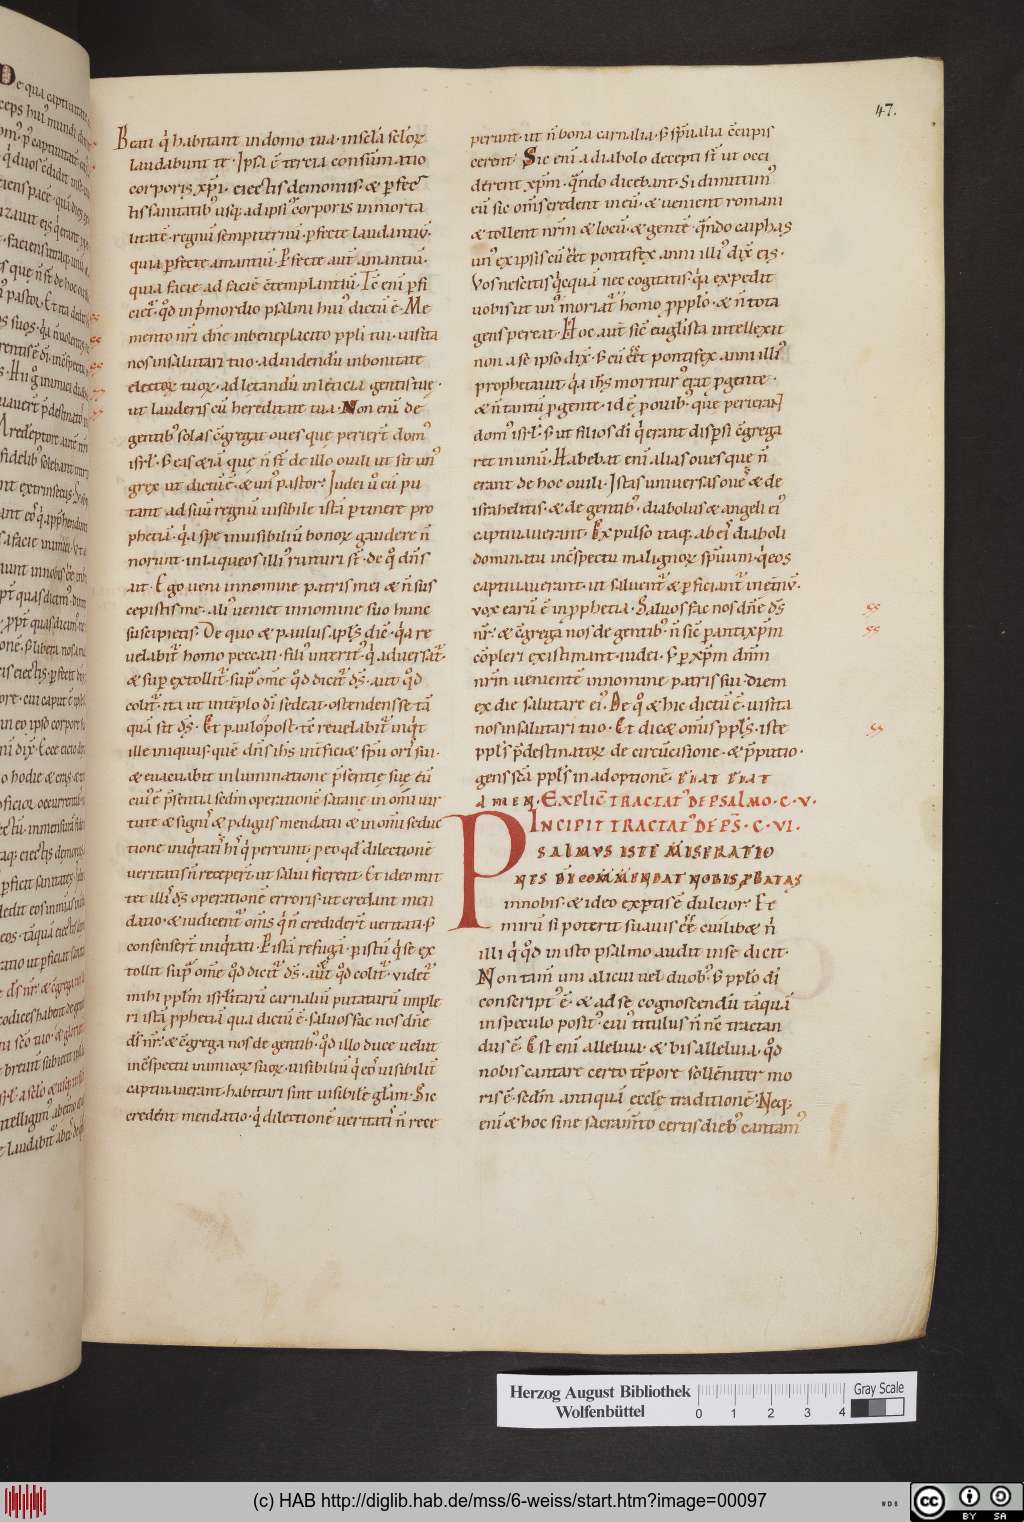 47.
Beati q̇ habitant in domo tua · in sclā sclōꝝ
laudabunt te · Ipsa ē tercia consūmatio
corporis xp̄i · eiectis demoniis · & ꝑfec
tis sanitatibꝰ usq; ad ipsiꝰ corporis inmorta
litatē · regnū sempiternū · ꝑfecte laudantiū ·
quia ꝑfecte amantiū · Ꝑfecte aut̄ amantiū ·
quia facie ad faciē c̄templantiū · Tc̄ eni ꝑfi
ciet̄ · qd̄ in p̄mordio psalmi huiꝰ dictū ē · Me
mento nr̄i dn̄e in beneplacito ppli tui · uisita
nos in salutari tuo · ad uidendū in bonitate
electoꝝ tuoꝝ · ad letandū in leticia gentis tuę ·
ut lauderis cū hereditate tua · Non eni de
gentibꝰ solas c̄gregat oues quę perier̄t domꝰ
isrl̄ · s; eas &iā quę n̄ st̄ de illo ouili ut sit unꝰ
grex ut dictū ē · & unꝰ pastor · Iudei u̇ cū pu
tant ad suū regnū uisibile istā ꝑtinere pro
phetiā · q̇a spe inuisibiliū bonoꝝ gaudere n̄
norunt · in laqueos illiꝰ ruituri st̄ · de q̇ dn̄s
ait · Ego ueni in nomine patris mei & n̄ sus
cepistis me · aliꝰ ueniet in nomine suo hunc
suscipietis · De quo & paulus apl̄s dic̄ · q̇a re
uelabit̄ homo peccati · filiꝰ interitꝰ · q̇ aduersat̄ ·
& supextollit̄ · sup̄ om̄e qd̄ dicit̄ ds̄ · aut qd̄
colit̄ · ita ut in tēplo di sedeat · ostendens se tā
quā sit ds̄ · Et paulo post · tc̄ reuelabit̄ inq̇t
ille iniquus · quē dn̄s ih̄s int̄fici& spū oris sui ·
& euacuabit inluminatione p̄sentię suę eū
cuiꝰ ē p̄sentia sedm operationē satanę in om̄i uir
tute & signis & pdigiis mendatii & in om̄i seduc
tione iniq̇tatis his q̇ pereunt · p eo qd̄ dilectionē
ueritatis n̄ receper̄t ut salui fierent · Et ideo mit
tet illis ds̄ operationē erroris · ut credant men
datio · & iudicent̄ om̄s q̇ n̄ credider̄t ueritati · s;
consenser̄t iniq̇tati · Ꝑ istā refugā · ꝑ istū q̇ se ex
tollit sup̄ om̄e qd̄ dicit̄ ds̄ · aut qd̄ colit̄ · uidet̄
mihi pplm isrl̄itarū carnaliū putaturū imple
ri istā pphetiā qua dictū ē · saluos fac nos dn̄e
ds̄ nr̄ · & c̄grega nos de gentibꝰ · qd̄ illo duce uelut
inc̄spectu inimicoꝝ suoꝝ uisibiliū q̇ eos uisibilit̄
captiuauerant · habituri sint uisibilē glam · Sic
credent mendatio · q̇ dilectionē ueritatis n̄ rece
perunt · ut n̄ bona carnalia · s; spūalia c̄cupis
cerent · Sic eni a diabolo decepti st̄ ut occi
derent xpm · qn̄do dicebant · Si dimittimꝰ
eū sic om̄s credent in eū · & uenient romani
& tollent nr̄m & locū · & gentē · qn̄do caiphas
unꝰ ex ipsis cū eēt pontifex anni illiꝰ dix̄ eis ·
Vos nescitis q̇cquā nec cogitatis · q̇a expedit
uobis ut unꝰ moriat̄ homo p pplo · & n̄ tota
gens pereat · Hoc aut̄ sic̄ euglista intellexit
non a se ipso dix̄ · s; cū eēt pontifex anni illiꝰ
prophetauit q̇a ih̄s moriturꝰ erat p gente ·
& n̄ tantū p gente · id ē p ouibꝰ · quę perierant
domꝰ isrl̄ · s; ut filios di q̇ erant disp̄si c̄grega
ret in unū · Habebat eni alias oues quę n̄
erant de hoc ouili · Istas uniuersas oues & de
israhelitis · & de gentibꝰ · diabolus & angeli eiꝰ
captiuauerant · Expulso itaq; ab eis diaboli
dominatu inc̄spectu malignoꝝ spūum · q̇ eos
captiuauerant · ut saluent̄ & ꝑficiant̄ in et̄nū ·
uox earū ē in pphetia · Saluos fac nos dn̄e ds̄
nr̄ · & c̄grega nos de gentibꝰ · n̄ sic̄ ꝑ antixpm
c̄pleri existimant iudei · s; ꝑ xpm dnm
nr̄m uenientē in nomine patris sui · diem
ex die salutare eiꝰ · De q̇ & hic dictū ē · uisita
nos in salutari tuo · Et dic& om̄is ppls̄ · iste
ppls̄ p̄destinatoꝝ de circūcisione · & p̄putio ·
gens scā ppls̄ in adoptionē · FIAT FIAT
AMEN · EXPLIC̄ TRACTATꝰ DE PSALMO · C · V ·
INCIPIT TRACTATꝰ DE PS̄ · C · VI ·
PSALMVS ISTE MISERATIO
NES DI COMMENDAT NOBIS, PBATAS
in nobis · & ideo exꝑtis ē dulcior · Et
mirū si poterit suauis eē cuilib& n̄
illi q̇ qd̄ in isto psalmo audit in se dicit ·
Non tam̄ uni alicui uel duobꝰ · s; pplo di
conscriptꝰ ē · & ad se cognoscendū tāquā
in speculo positꝰ · cuiꝰ titulus n̄ nc̄ tractan
dus ē · Est eni alleluia · & bis alleluia · qd̄
nobis cantare certo tēpore sollēniter mo
ris ē · sedm antiquā ecclę traditionē · Neq;
eni & hoc sine sacram̄to certis diebꝰ cantamꝰ
Herzog August Bibliothek
Wolfenbüttel
0 1 2 3 4
Gray Scale
(c) HAB http://diglib.hab.de/mss/6-weiss/start.htm?image=00097
WDB
cc BY SA